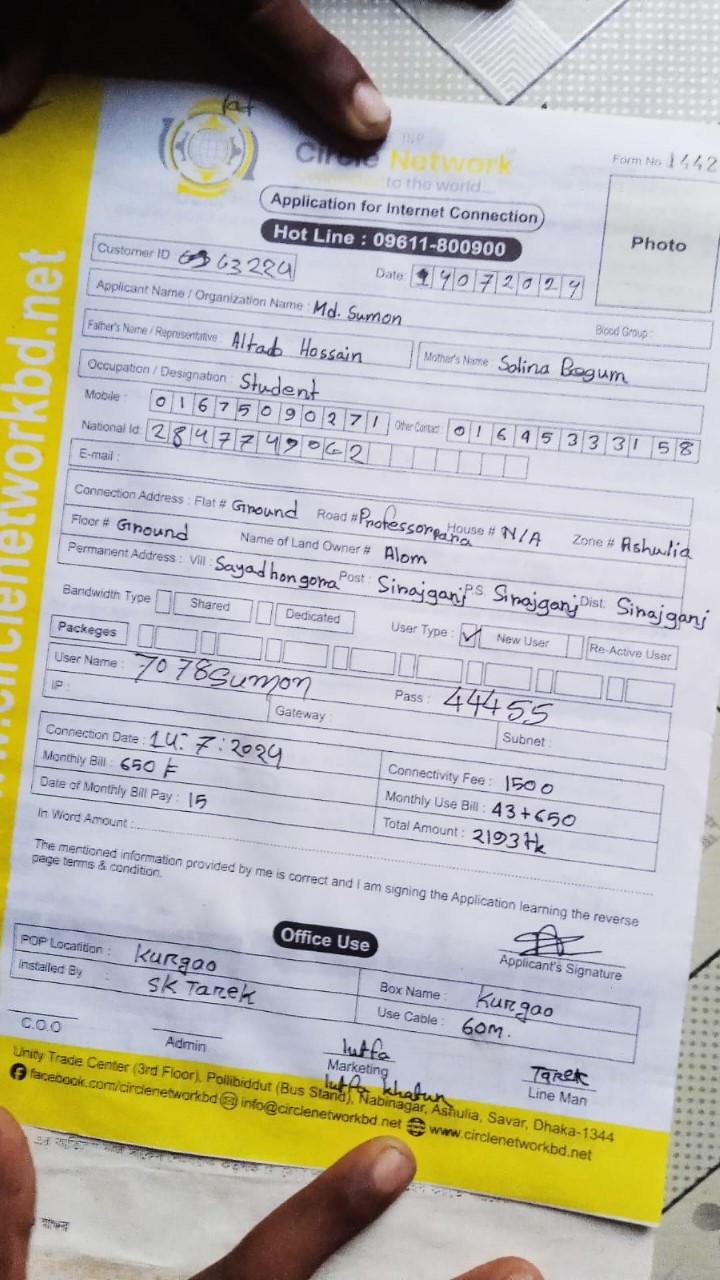 Form No 1442
Circle Network
to the world...
Application for Internet Connection
Hot Line : 09611-800900
Photo
Customer ID 63224
Date: 14072024
Applicant Name / Organization Name : Md. Sumon
Blood Group :
Father's Name / Representative : Altab Hossain Mother's Name : Salina Begum
Occupation / Designation : Student
Mobile : 01675090271 Other Contact 01645333158
National Id: 2847749062
E-mail :
Connection Address : Flat # Ground Road # Professorpara House # N/A Zone # Ashulia
Floor # Ground Name of Land Owner # Alom
Permanent Address : Vill : Sayadhongora Post : Sirajganj P.S. Sirajganj Dist: Sirajganj
Bandwidth Type Shared Dedicated User Type : ✓ New User Re-Active User
Packeges
User Name : 7078sumon Pass : 44455
IP : Gateway : Subnet :
Connection Date : 14:7:2024 Connectivity Fee : 1500
Monthly Bill : 650 Monthly Use Bill : 43+650
Date of Monthly Bill Pay : 15 Total Amount : 2193 tk
In Word Amount :
The mentioned information provided by me is correct and I am signing the Application learning the reverse
page terms & condition.
Applicant's Signature
Office Use
POP Locatition : Kurgao Box Name : Kurgao
Installed By : SK Tarek Use Cable : 60m.
C.O.O Admin lutfa Marketing Tarek Line Man
lutfa khatun
Unity Trade Center (3rd Floor), Pollibiddut (Bus Stand), Nabinagar, Ashulia, Savar, Dhaka-1344
facebook.com/circlenetworkbd info@circlenetworkbd.net www.circlenetworkbd.net
www.circlenetworkbd.net